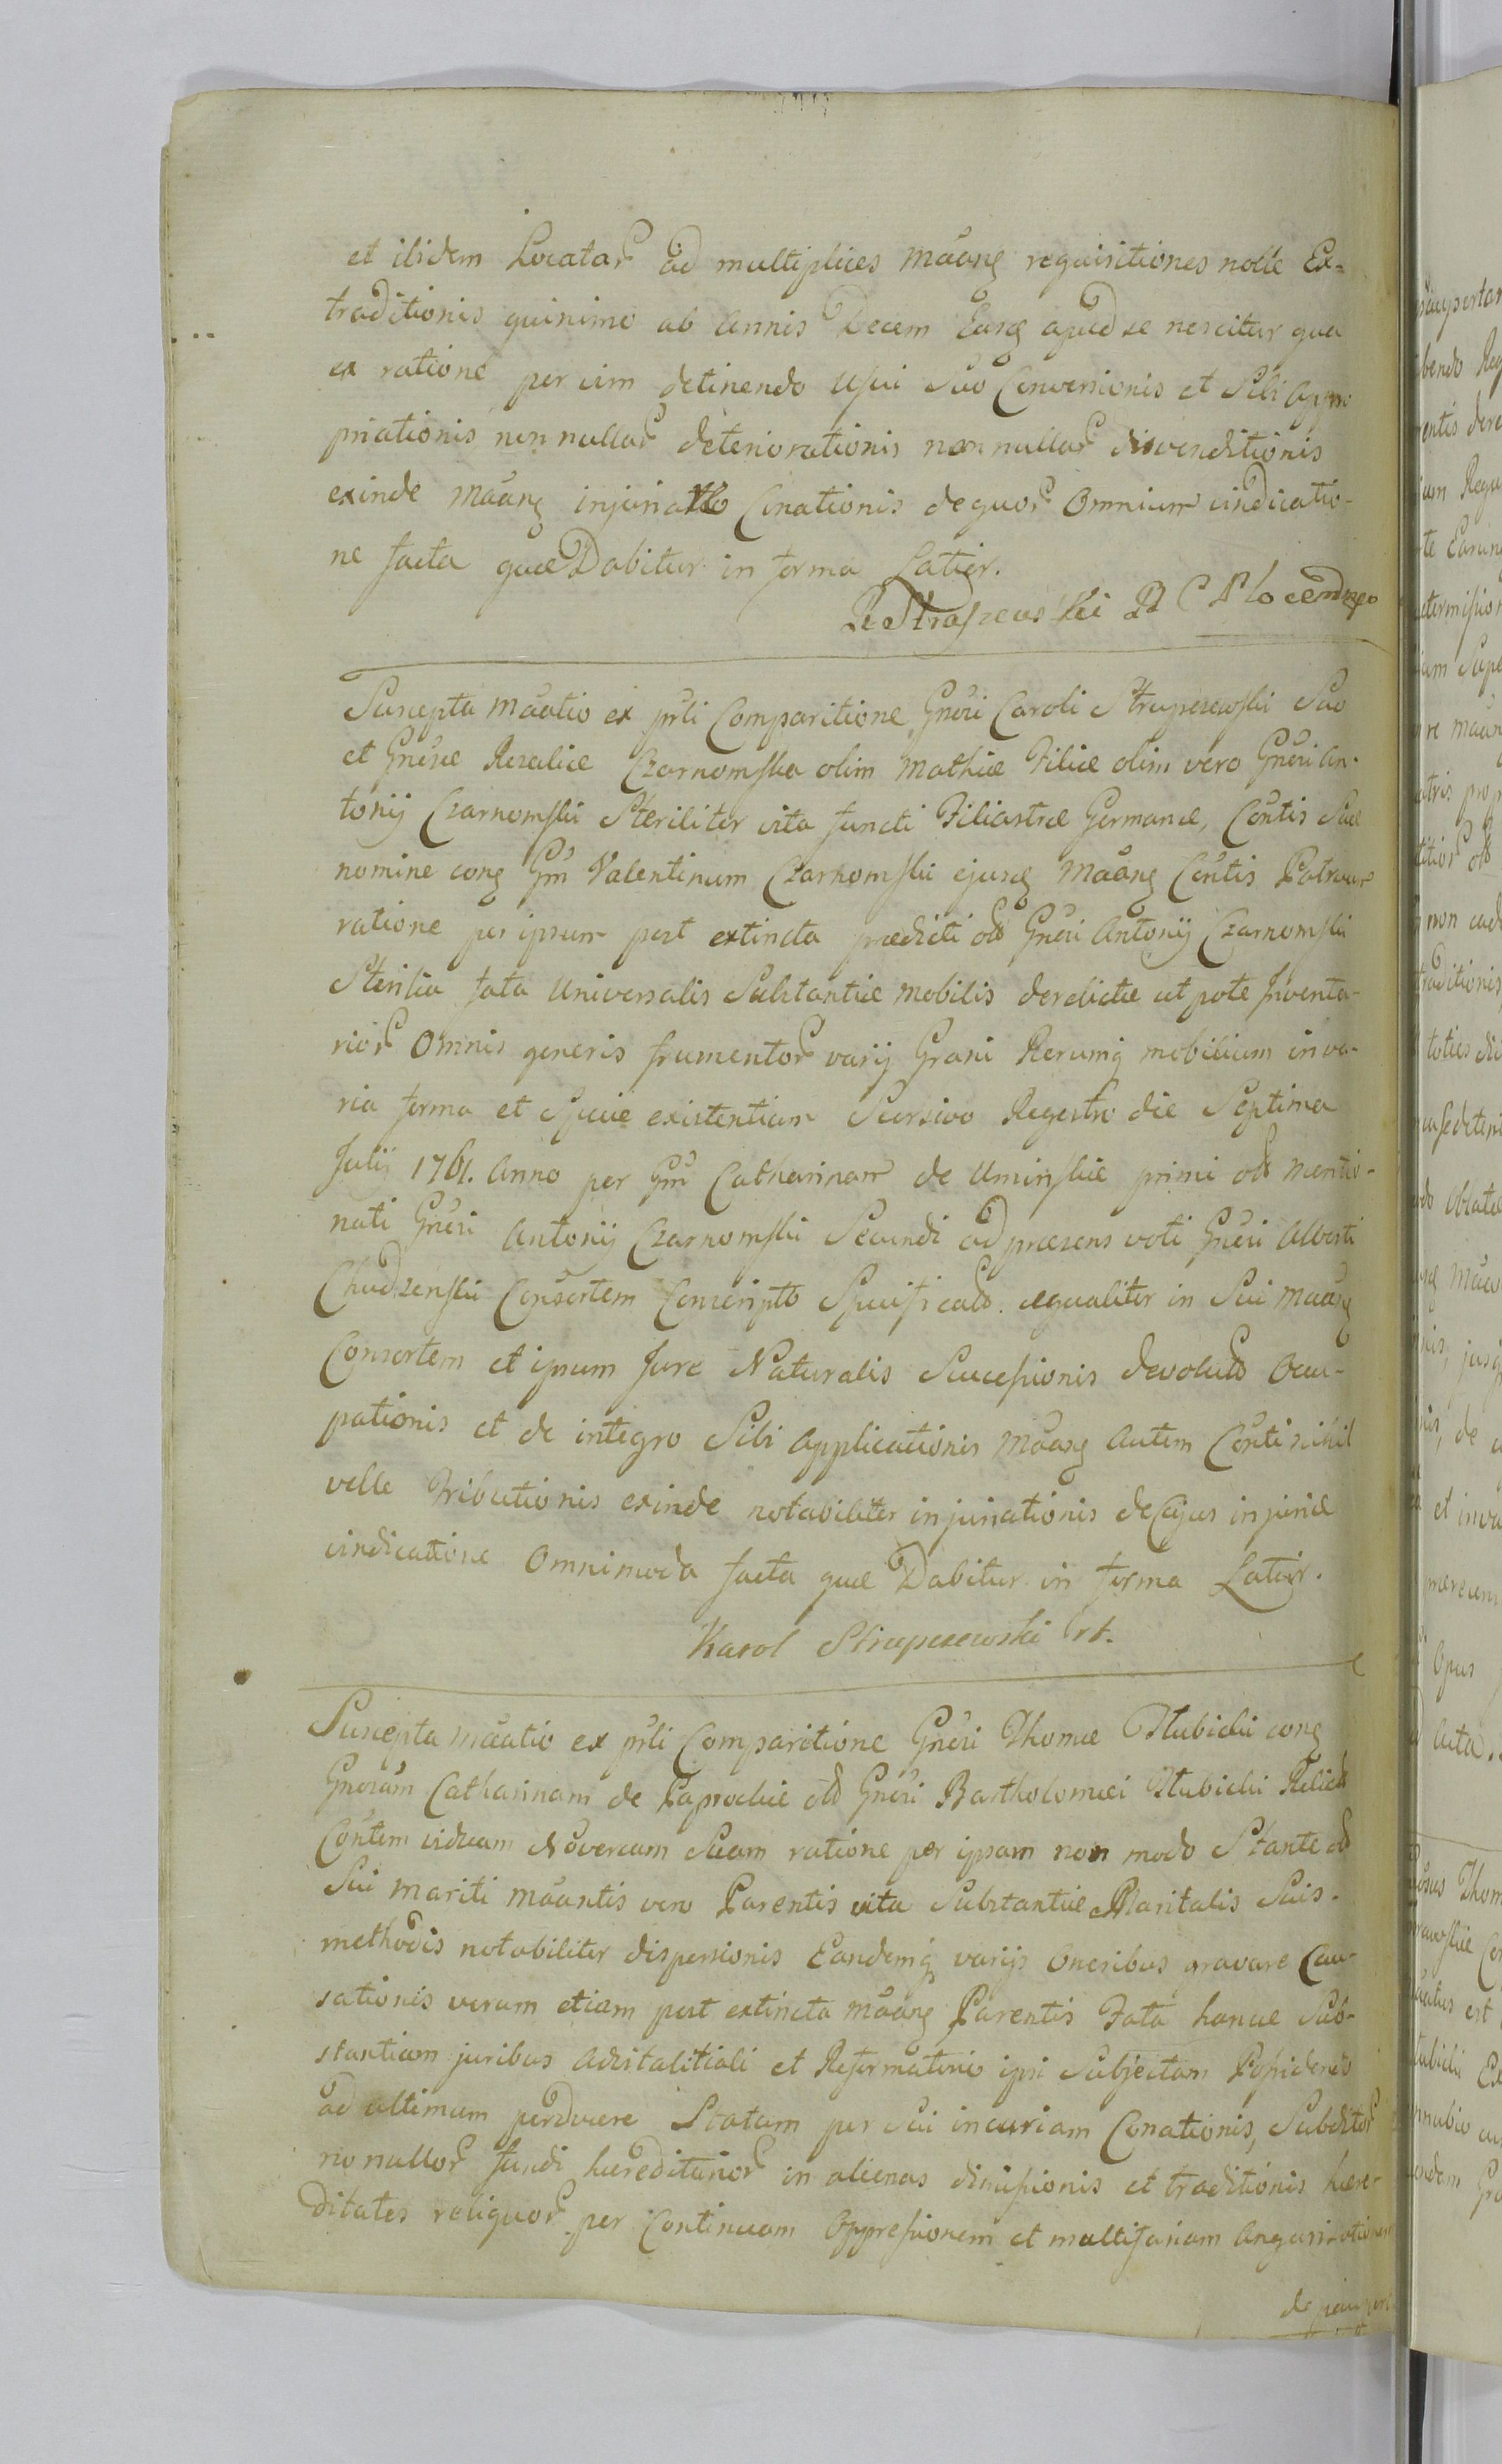 et ibidem Locatar ad multiplices Mãang requisitiones nolle Ex-
traditionis quinimo ab Annis Decem Easq apud se nescitur qua
ex ratione per vim detinendo Usui Suo Conversionis et Sibi appro
priationis non nullar deteriorationis non nullar divenditionis
exinde Mãang injuriatto Conationis dequor Omnium vindicatio-
ne facta quæ Dabitur in forma Latior.
Suscepta Mãatio ex prli Comparitione Gnõsi Caroli Strupczewski Suo
et Gnõsæ Rosaliæ Czarnomska olim Mathiæ Filiæ olim vero Gnõsi An-
tonij Czarnomski Steriliter vita functi Filiastræ Germanæ, Contis Suæ
nomine cong Gm Valentinum Czarnomski ejusq Mãang Contis Patruum
ratione per ipsum post extincta prædicti olb Gnõsi Antonij Czarnomski
Sterilia fata Universalis Substantiæ Mobilis derelictæ ut pote Inventa-
rior Omnis generis frumentor varij Grani Rerumq mobilium in va-
ria forma et Specie existentium Seorsivo Regestro die Septima
Julij 1761. Anno per Gm Catharinam de Uminskie primi olb mentio-
nati Gnõsi Antonij Czarnomski Secundi ad præsens voti Gnõsi Alberti
Chudzenski Consortem Conscripto Specificato. æqualiter in Sui Mãang
Consortem et ipsum Jure Naturalis Successionis devoluto Occu-
pationis et de integro Sibi Applicationis Mãang Autem Conti nihil
velle Tributionis exinde notabiliter injuriationis de Cujus injuriæ
vindicatione Omnimoda facta quæ Dabitur in forma Latior.
Karol Strupczewski
Suscepta Mãatio ex prli Comparitione Gnõsi Thomæ Stubicki cong
Gnosam Catharinam de Paprockie olb Gnõsi Bartholomæi Stubicki Relict
Contem viduam Novercam Suam ratione per ipsam non modo Stante olb
Sui mariti Mãantis vero Parentis vita Substantiæ Maritalis Suis-
methodis notabiliter dispersionis Eandemq varijs Oneribus gravare Cau-
sationis verum etiam post extincta Mãang Parentis Fata hancce Sub-
stantiam juribus Advitalitiali et Reformatorio ipsi Subjectam Possidendo
ad ultimum perducere Statum per Sui incuriam Conationis, Subditor
nonullor fundi hæreditarior in alienas dimissionis et traditionis hære-
ditates reliquor per Continuam Oppressionem et multifariam Angarizationem